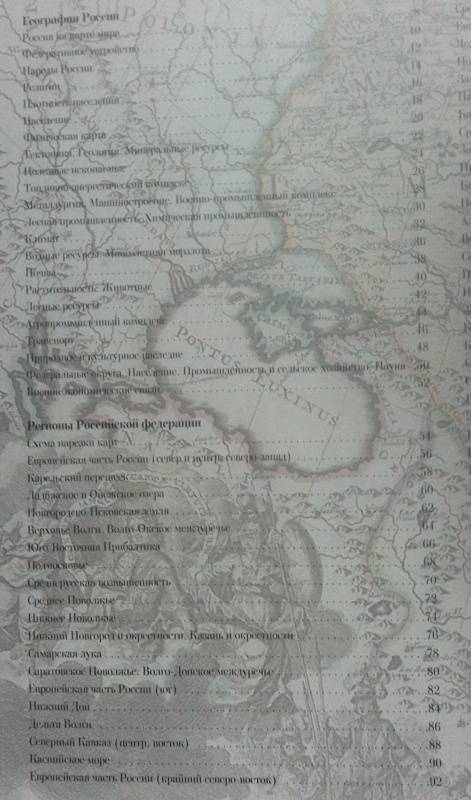 География России
Россия на карте мира 10
Федеративное устройство 12
Народы России 14
Религии 16
Плотность населения 18
Население 20
Физическая карта 22
Тектоника. Геология. Минеральные ресурсы 24
Полезные ископаемые 26
Топливно-энергетический комплекс 28
Металлургия. Машиностроение. Военно-промышленный комплекс 30
Лесная промышленность. Химическая промышленность 32
Климат 36
Водные ресурсы. Многолетняя мерзлота 38
Почвы 40
Растительность. Животные 42
Лесные ресурсы 44
Агропромышленный комплекс 46
Транспорт 48
Природное и культурное наследие 50
Федеральные округа. Население. Промышленность и сельское хозяйство. Наука
Внешнеэкономические связи 52
PONTUS EUXINUS
Регионы Российской федерации
Схема нарезки карт 54
Европейская часть России (север и центр, северо-запад) 56
Карельский перешеек 58
Ладожское и Онежское озера 60
Новгородско-Псковская земля 62
Верховье Волги. Волго-Окское междуречье 64
Юго-Восточная Прибалтика 66
Подмосковье 68
Среднерусская возвышенность 70
Среднее Поволжье 72
Нижнее Поволжье 74
Нижний Новгород и окрестности. Казань и окрестности 76
Самарская лука 78
Саратовское Поволжье. Волго-Донское междуречье 80
Европейская часть России (юг) 82
Нижний Дон 84
Дельта Волги 86
Северный Кавказ (центр, восток) 88
Каспийское море 90
Европейская часть России (крайний северо-восток) 92